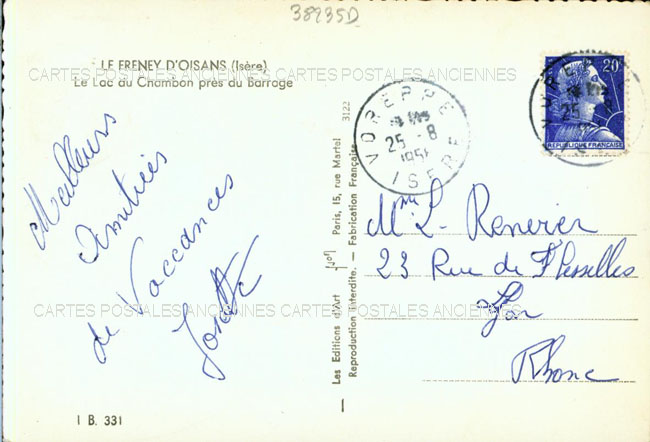 38935D
LE FRENEY D'OISANS (Isère)
Le Lac du Chambon près du Barrage
CARTES POSTALES ANCIENNES CARTES POSTALES ANCIENNES
Meilleurs
Amitiées
de Vaccances
Josette
CARTES POSTALES ANCIENNES CARTES POSTALES ANCIENNES
1 B. 331
Les Editions d'Art Paris, 15, rue Martel 3122
Reproduction interdite. - Fabrication Française
VOREPPE
25 -8
ISERE
20
REPUBLIQUE FRANÇAISE
25
Mme L. Renevier
23 Rue de
Rhone